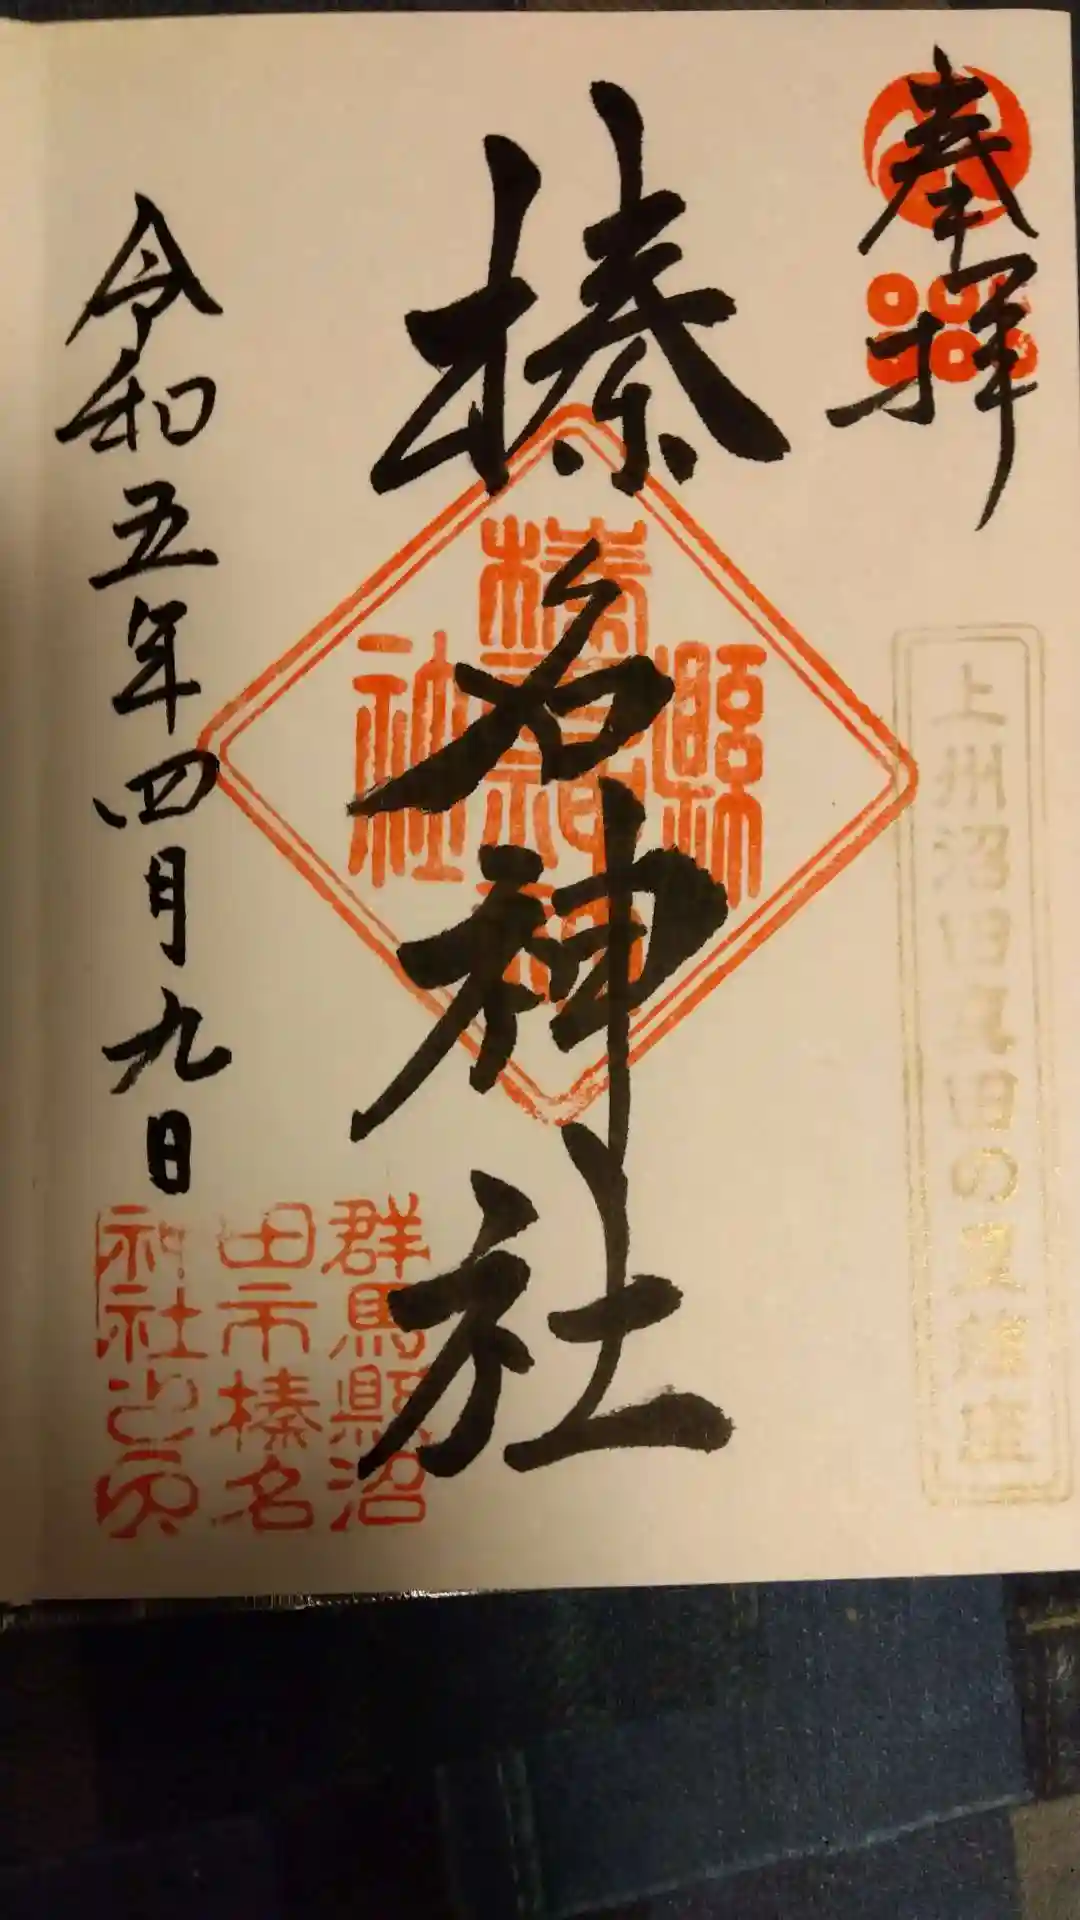 奉拝
上州沼田真田の里
榛名神社
縣
榛名
社
群馬縣沼
田市榛名
神社之印
令和五年四月九日